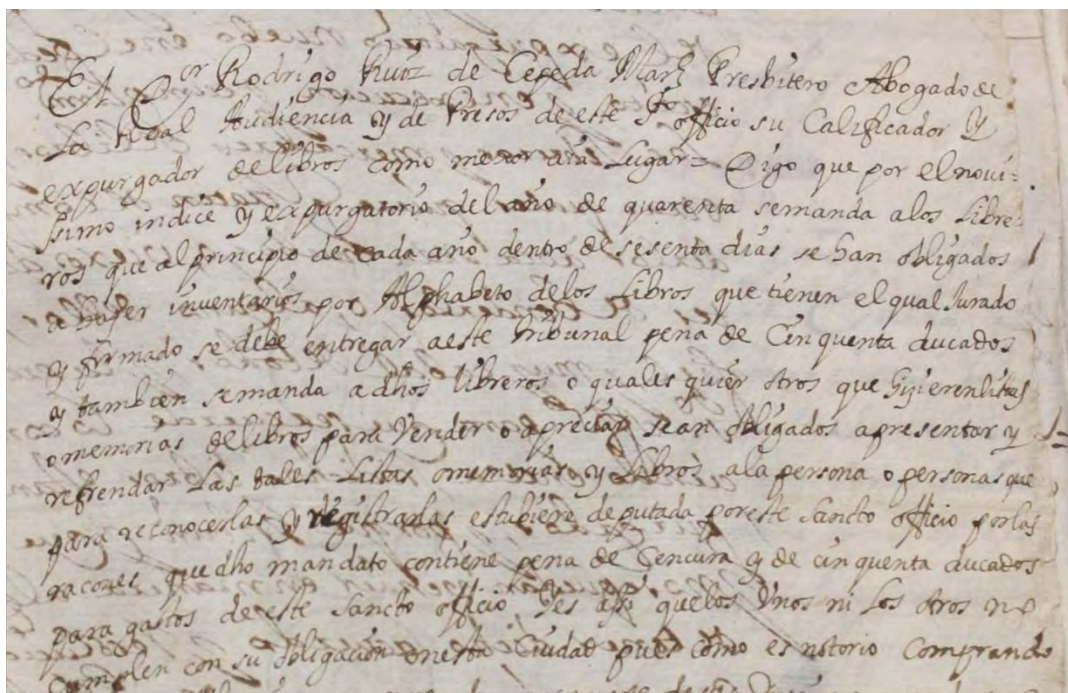 El Dor Rodrigo Ruiz de Cepeda Marz Presbitero Abogado de
La Real Audiencia y de Presos de este Sto officio su Calificador y
expurgador de libros como mejor aya lugar = Digo que por el novi=
ssimo indice y expurgatorio del año de quarenta se manda a los Libre=
ros que al principio de cada año dentro de sesenta dias se han obligados
a hazer inventarios por Alphabeto de los Libros que tienen el qual Jurado
y firmado se debe entregar a este Tribunal pena de Cinquenta ducados
y tambien se manda a dhos libreros o quales quier otros que hizieren listas
o memorias de libros para Vender o apreciar sean obligados a presentar y
refrendar Las tales Listas o memorias y Libros a la persona o personas que
para reconocerlas y registrarlas estubiere deputada por este Sancto officio por las
racones que dho mandato contiene pena de Cencura y de cinquenta ducados
para gastos de este Sancto officio Y es assi que los Unos ni Los otros no
Cumplen con su obligacion en esta Ciudad pues como es notorio Comprando